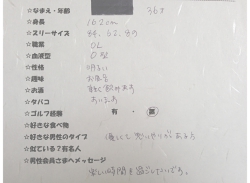 ☆なまえ・年齢 36才
☆身長 162cm
☆スリーサイズ 84. 62. 85
☆職業 OL
☆血液型 O型
☆性格 明るい
☆趣味 お昼寝
☆お酒
☆タバコ すいます
☆ゴルフ経験 有・無
☆好きな食べ物
☆好きな男性のタイプ 優しくて思いやりがある方
☆似ている?有名人
☆男性会員さまへメッセージ
楽しい時間を過ごしたいです。